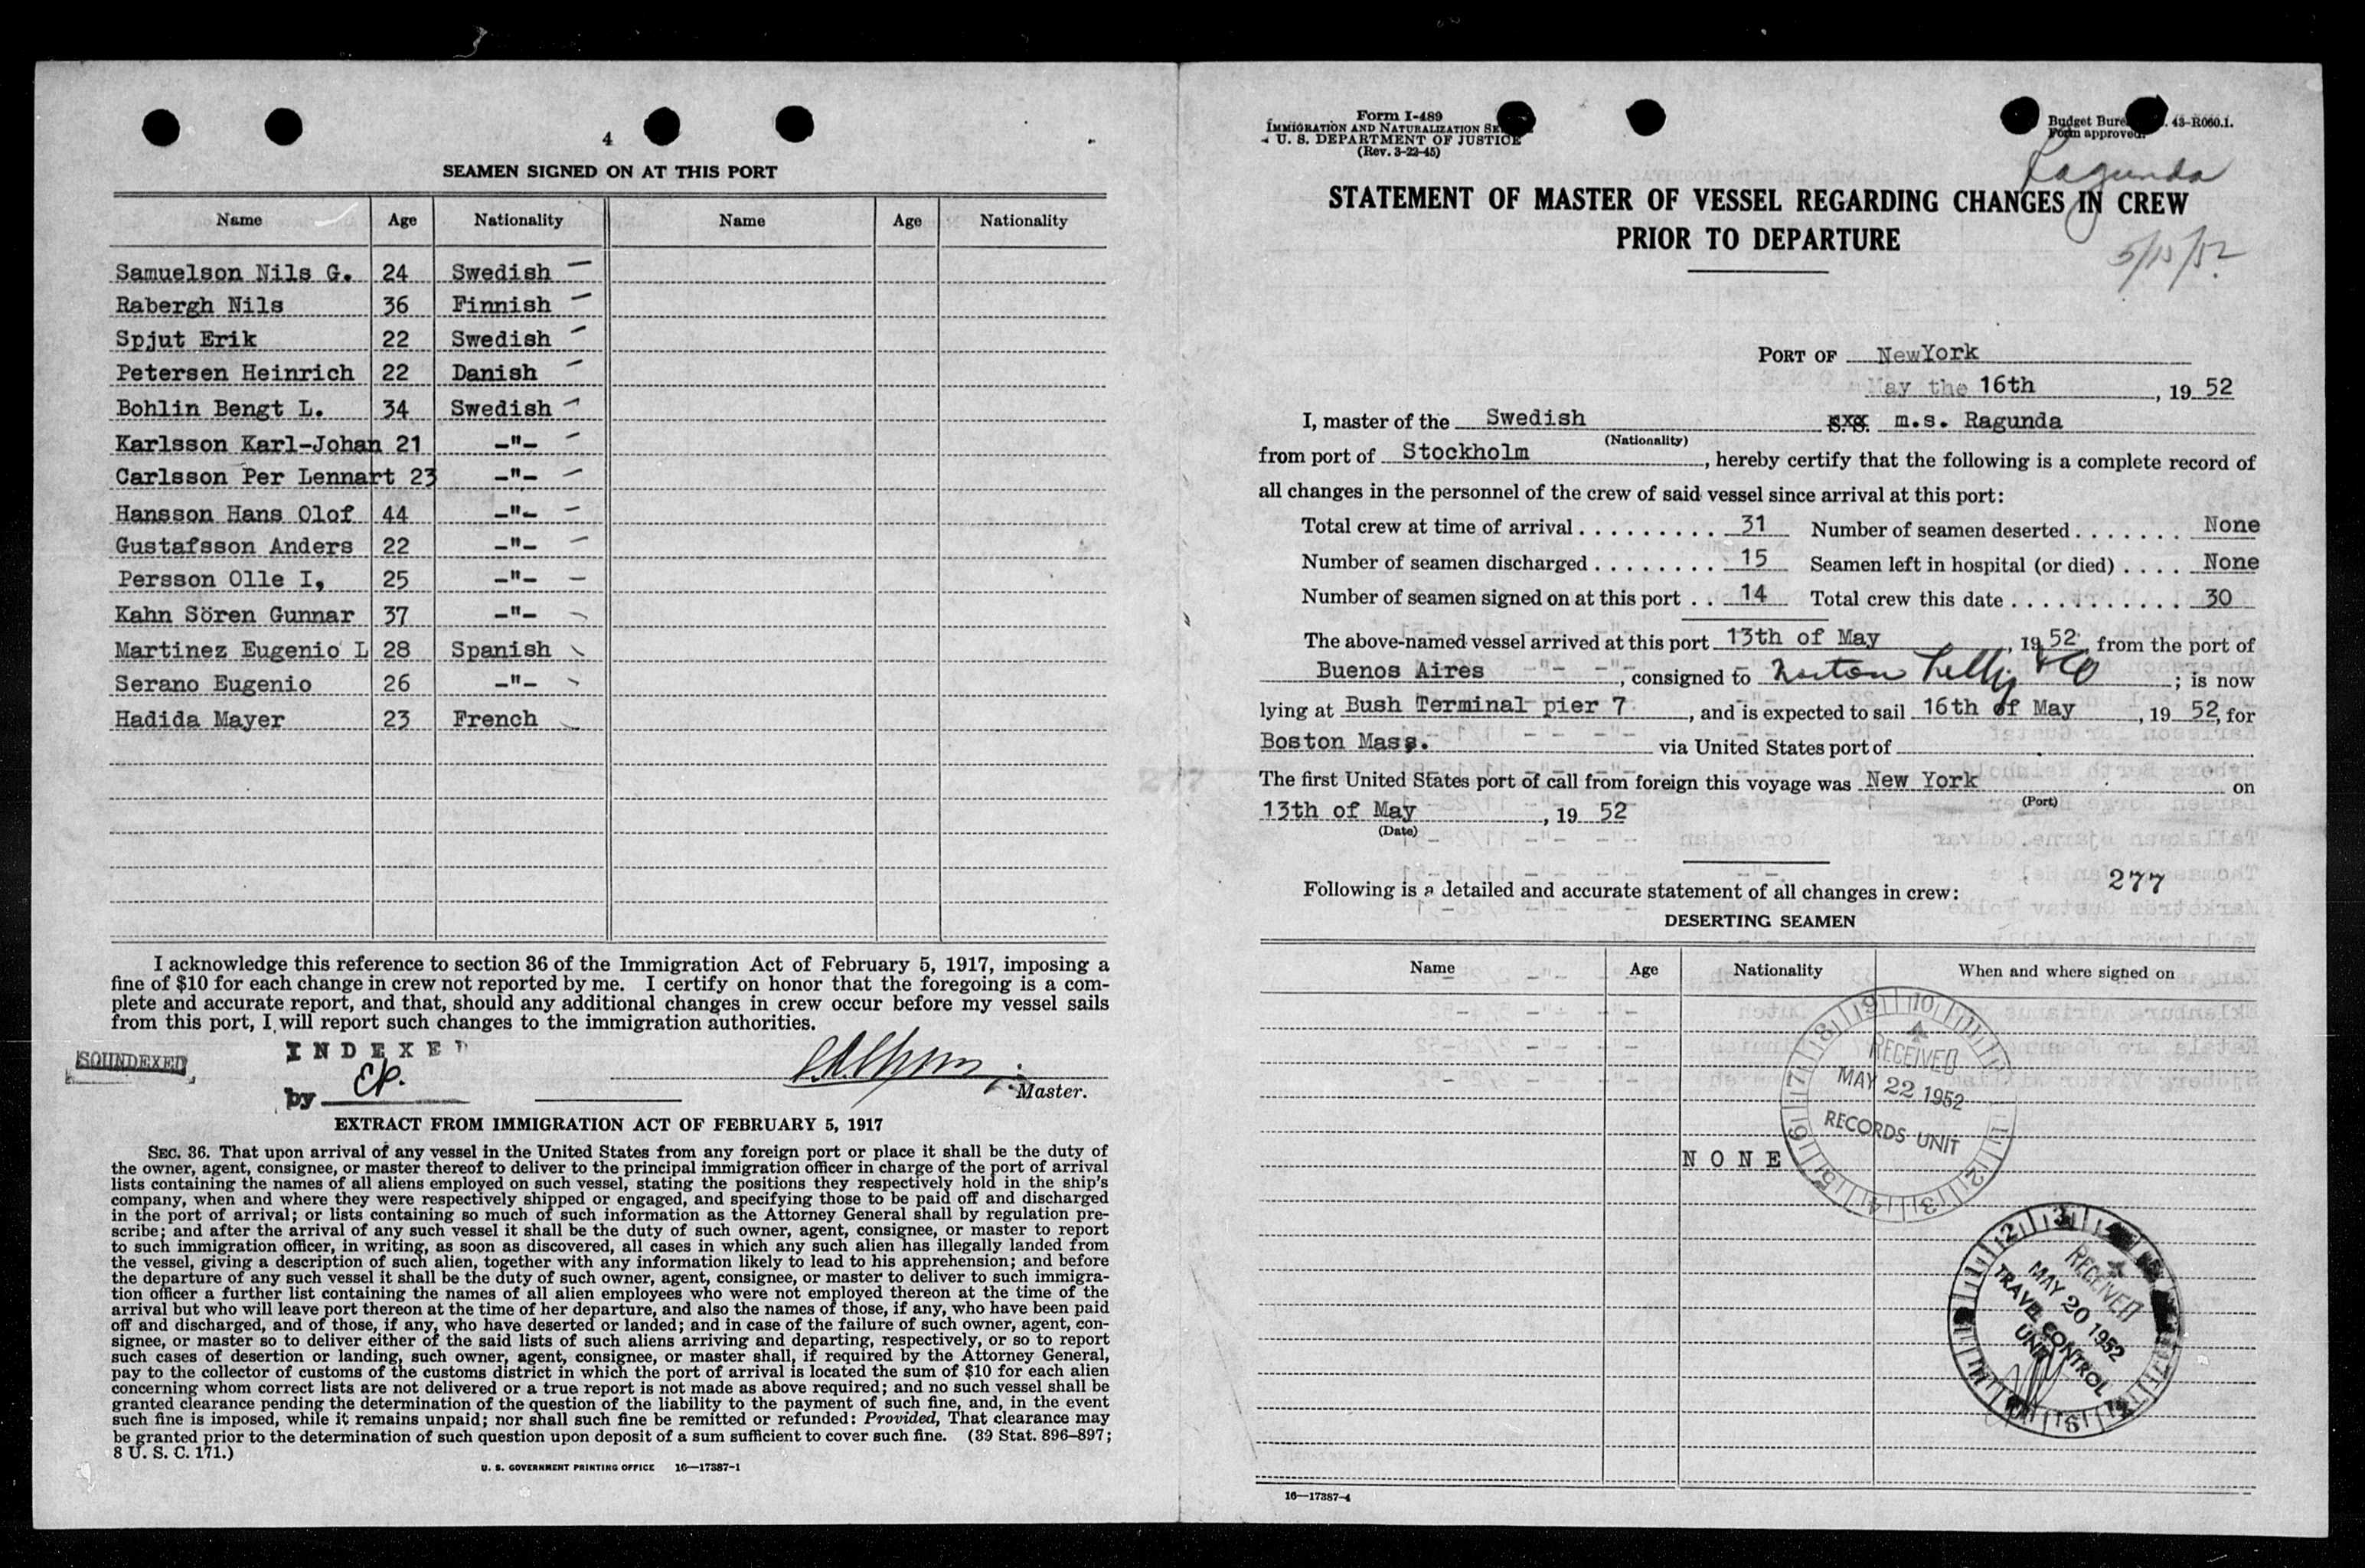 4
SEAMEN SIGNED ON AT THIS PORT
Name Age Nationality Name Age Nationality
Samuelson Nils G. 24 Swedish
Rabergh Nils 36 Finnish
Spjut Erik 22 Swedish
Petersen Heinrich 22 Danish
Bohlin Bengt L. 34 Swedish
Karlsson Karl-Johan 21 -"-
Carlsson Per Lennart 23 -"-
Hansson Hans Olof 44 -"-
Gustafsson Anders 22 -"-
Persson Olle I, 25 -"-
Kahn Sören Gunnar 37 -"-
Martinez Eugenio L 28 Spanish
Serano Eugenio 26 -"-
Hadida Mayer 23 French
I acknowledge this reference to section 36 of the Immigration Act of February 5, 1917, imposing a
fine of $10 for each change in crew not reported by me. I certify on honor that the foregoing is a com-
plete and accurate report, and that, should any additional changes in crew occur before my vessel sails
from this port, I will report such changes to the immigration authorities.
SOUNDEXED
INDEXED
by EP.
Master.
EXTRACT FROM IMMIGRATION ACT OF FEBRUARY 5, 1917
SEC. 36. That upon arrival of any vessel in the United States from any foreign port or place it shall be the duty of
the owner, agent, consignee, or master thereof to deliver to the principal immigration officer in charge of the port of arrival
lists containing the names of all aliens employed on such vessel, stating the positions they respectively hold in the ship's
company, when and where they were respectively shipped or engaged, and specifying those to be paid off and discharged
in the port of arrival; or lists containing so much of such information as the Attorney General shall by regulation pre-
scribe; and after the arrival of any such vessel it shall be the duty of such owner, agent, consignee, or master to report
to such immigration officer, in writing, as soon as discovered, all cases in which any such alien has illegally landed from
the vessel, giving a description of such alien, together with any information likely to lead to his apprehension; and before
the departure of any such vessel it shall be the duty of such owner, agent, consignee, or master to deliver to such immigra-
tion officer a further list containing the names of all alien employees who were not employed thereon at the time of the
arrival but who will leave port thereon at the time of her departure, and also the names of those, if any, who have been paid
off and discharged, and of those, if any, who have deserted or landed; and in case of the failure of such owner, agent, con-
signee, or master so to deliver either of the said lists of such aliens arriving and departing, respectively, or so to report
such cases of desertion or landing, such owner, agent, consignee, or master shall, if required by the Attorney General,
pay to the collector of customs of the customs district in which the port of arrival is located the sum of $10 for each alien
concerning whom correct lists are not delivered or a true report is not made as above required; and no such vessel shall be
granted clearance pending the determination of the question of the liability to the payment of such fine, and, in the event
such fine is imposed, while it remains unpaid; nor shall such fine be remitted or refunded: Provided, That clearance may
be granted prior to the determination of such question upon deposit of a sum sufficient to cover such fine. (39 Stat. 896–897;
8 U. S. C. 171.)
U. S. GOVERNMENT PRINTING OFFICE 16—17387-1
Form I-489
IMMIGRATION AND NATURALIZATION
U. S. DEPARTMENT OF JUSTICE
(Rev. 3-22-45)
Budget 43-R060.1.
Form approved.
Ragunda
STATEMENT OF MASTER OF VESSEL REGARDING CHANGES IN CREW
PRIOR TO DEPARTURE
PORT OF NewYork
May the 16th, 19 52
I, master of the Swedish S.S. m.s. Ragunda
(Nationality)
from port of Stockholm, hereby certify that the following is a complete record of
all changes in the personnel of the crew of said vessel since arrival at this port:
Total crew at time of arrival . . . . . . . . . . 31 Number of seamen deserted . . . . . . . None
Number of seamen discharged . . . . . . . . 15 Seamen left in hospital (or died) . . . . None
Number of seamen signed on at this port . . 14 Total crew this date . . . . . . . . . . . 30
The above-named vessel arrived at this port 13th of May, 19 52, from the port of
Buenos Aires, consigned to Norton Lilly & Co; is now
lying at Bush Terminal pier 7, and is expected to sail 16th of May, 19 52, for
Boston Mass. via United States port of
The first United States port of call from foreign this voyage was New York on
(Port)
13th of May, 19 52
(Date)
277
Following is a detailed and accurate statement of all changes in crew:
DESERTING SEAMEN
Name Age Nationality When and where signed on
RECEIVED
MAY 22 1952
RECORDS UNIT
NONE
RECEIVED
MAY 20 1952
TRAVEL CONTROL
UNIT
16—17387-4